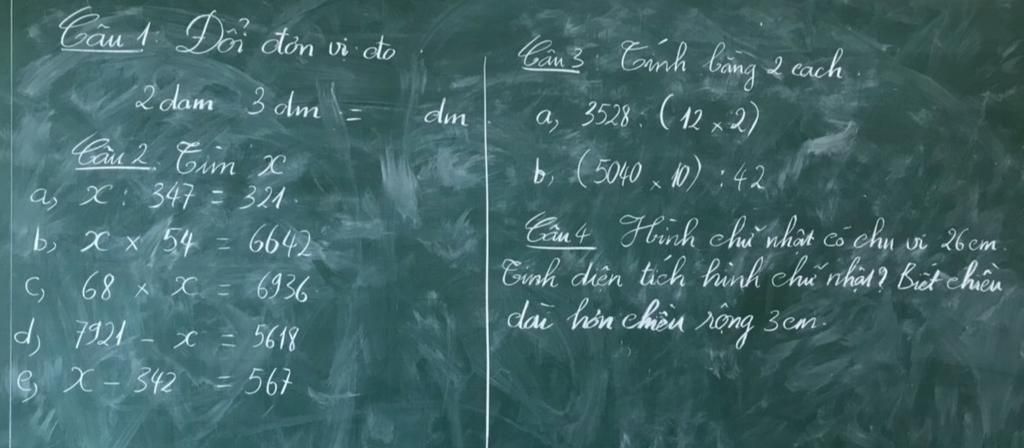 Câu 1: Đổi đơn vị đo
2 dam 3 dm = dm
Câu 2. Tìm x
a, x : 347 = 321
b, x × 54 = 6642
c, 68 × x = 6936
d, 7921 - x = 5618
e, x - 342 = 567
Câu 3: Tính bằng 2 cách.
a, 3528 : (12 × 2)
b, (5040 × 10) : 42
Câu 4 Hình chữ nhật có chu vi 26cm.
Tính diện tích hình chữ nhật? Biết chiều
dài hơn chiều rộng 3cm.